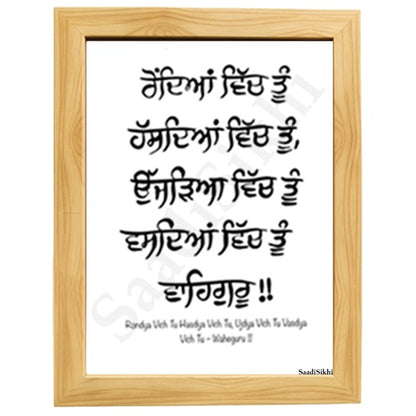 ਰੋਂਦਿਆਂ ਵਿੱਚ ਤੂੰ
ਹੱਸਦਿਆਂ ਵਿੱਚ ਤੂੰ,
ਉੱਜੜਿਆ ਵਿੱਚ ਤੂੰ
ਵਸਦਿਆਂ ਵਿੱਚ ਤੂੰ
ਵਾਹਿਗੁਰੂ !!
Rondya Vich Tu Hasdya Vich Tu, Ujdya Vich Tu Vasdya
Vich Tu - Waheguru !!
SaadiSikhi
SaadiSikhi